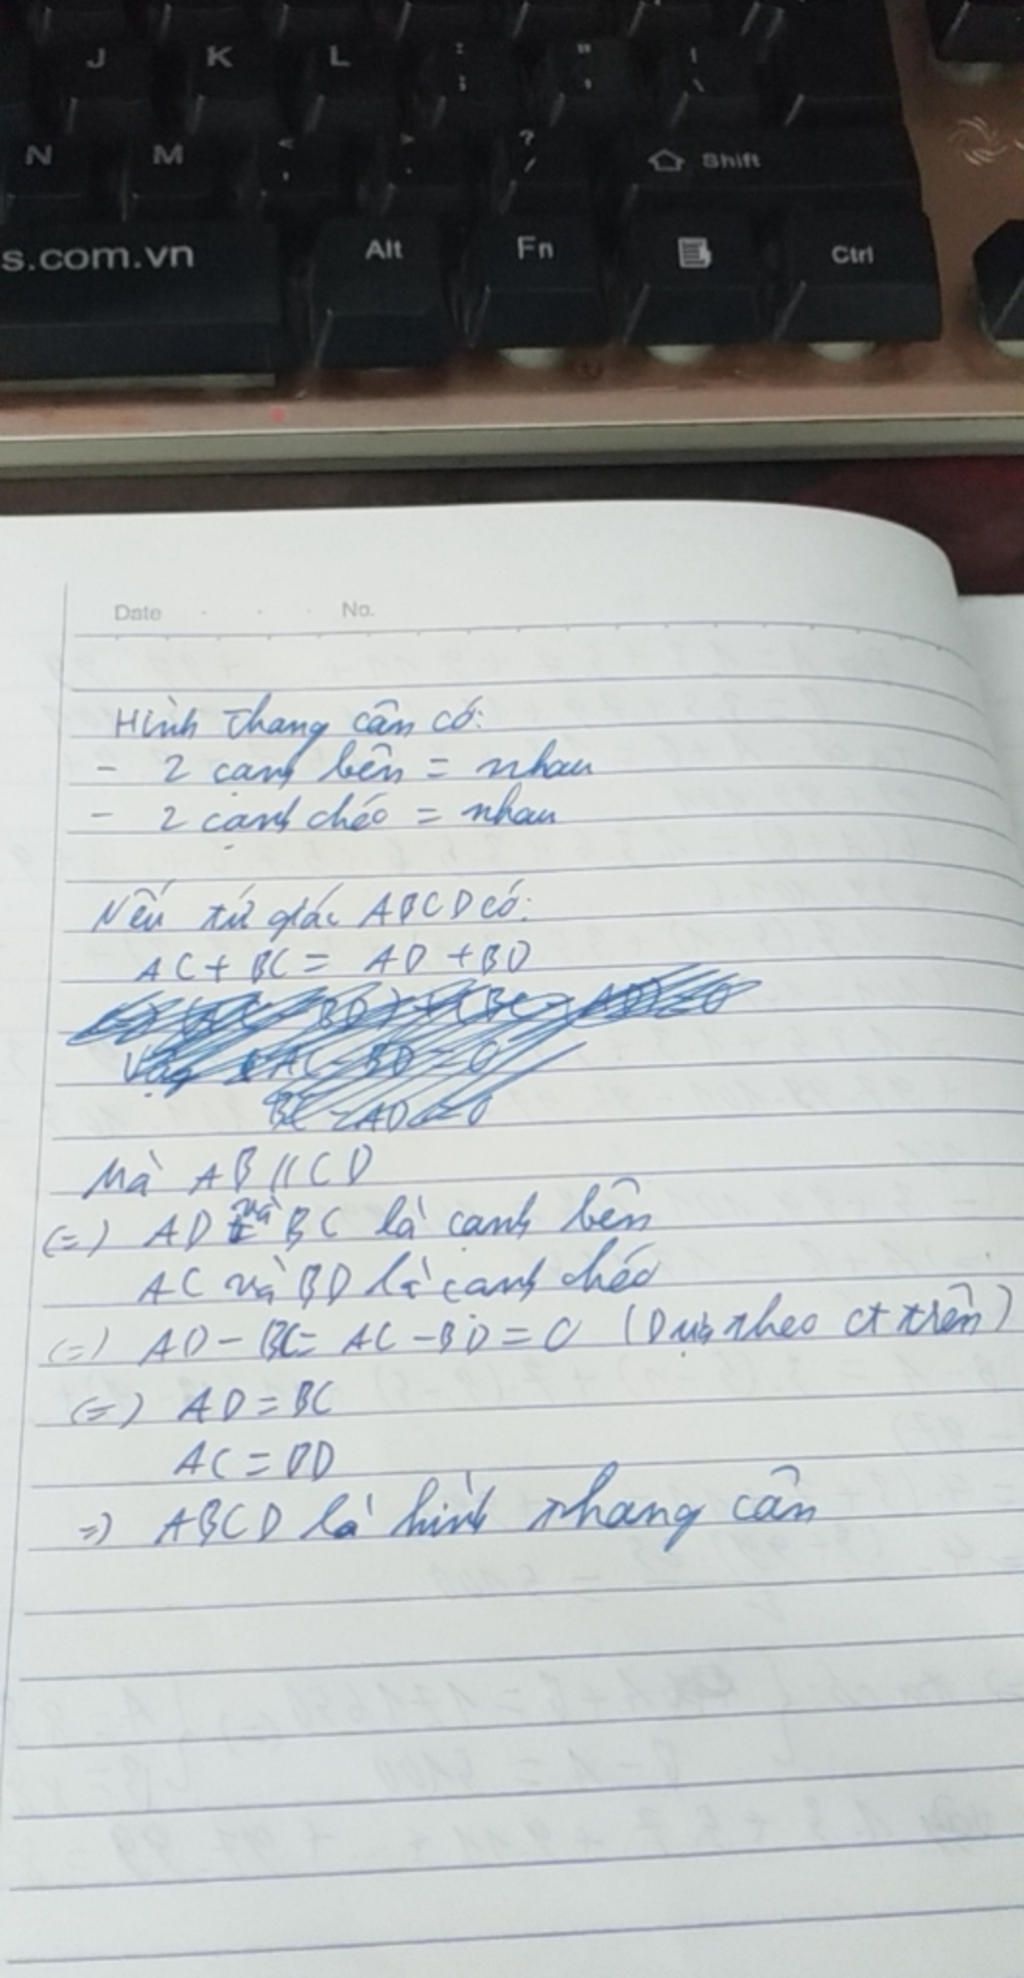 J K L : ; " ' | \
N M < , > . ? / Shift
s.com.vn Alt Fn Ctrl
Date No.
Hình thang cân có:
- 2 cạnh bên = nhau
- 2 cạnh chéo = nhau
Nếu tứ giác ABCD có:
AC + BC = AD + BD
Mà AB // CD
(=) AD và BC là cạnh bên
AC và BD là cạnh chéo
(=) AD - BC = AC - BD = 0 (Dựa theo ct trên)
(=) AD = BC
AC = BD
=) ABCD là hình thang cân